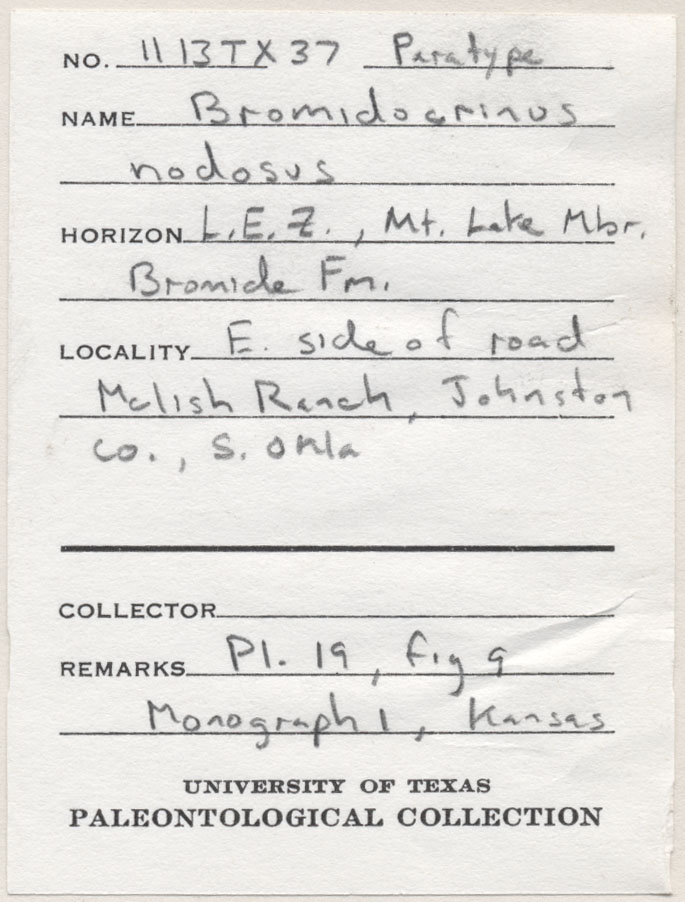 NO. 1113TX37 Paratype
NAME Bromidocrinus
nodosus
HORIZON L.E.Z., Mt. Lake Mbr.
Bromide Fm.
LOCALITY E. side of road
Mclish Ranch, Johnston
Co., S. Okla
COLLECTOR
REMARKS Pl. 19, fig 9
Monograph 1, Kansas
UNIVERSITY OF TEXAS
PALEONTOLOGICAL COLLECTION